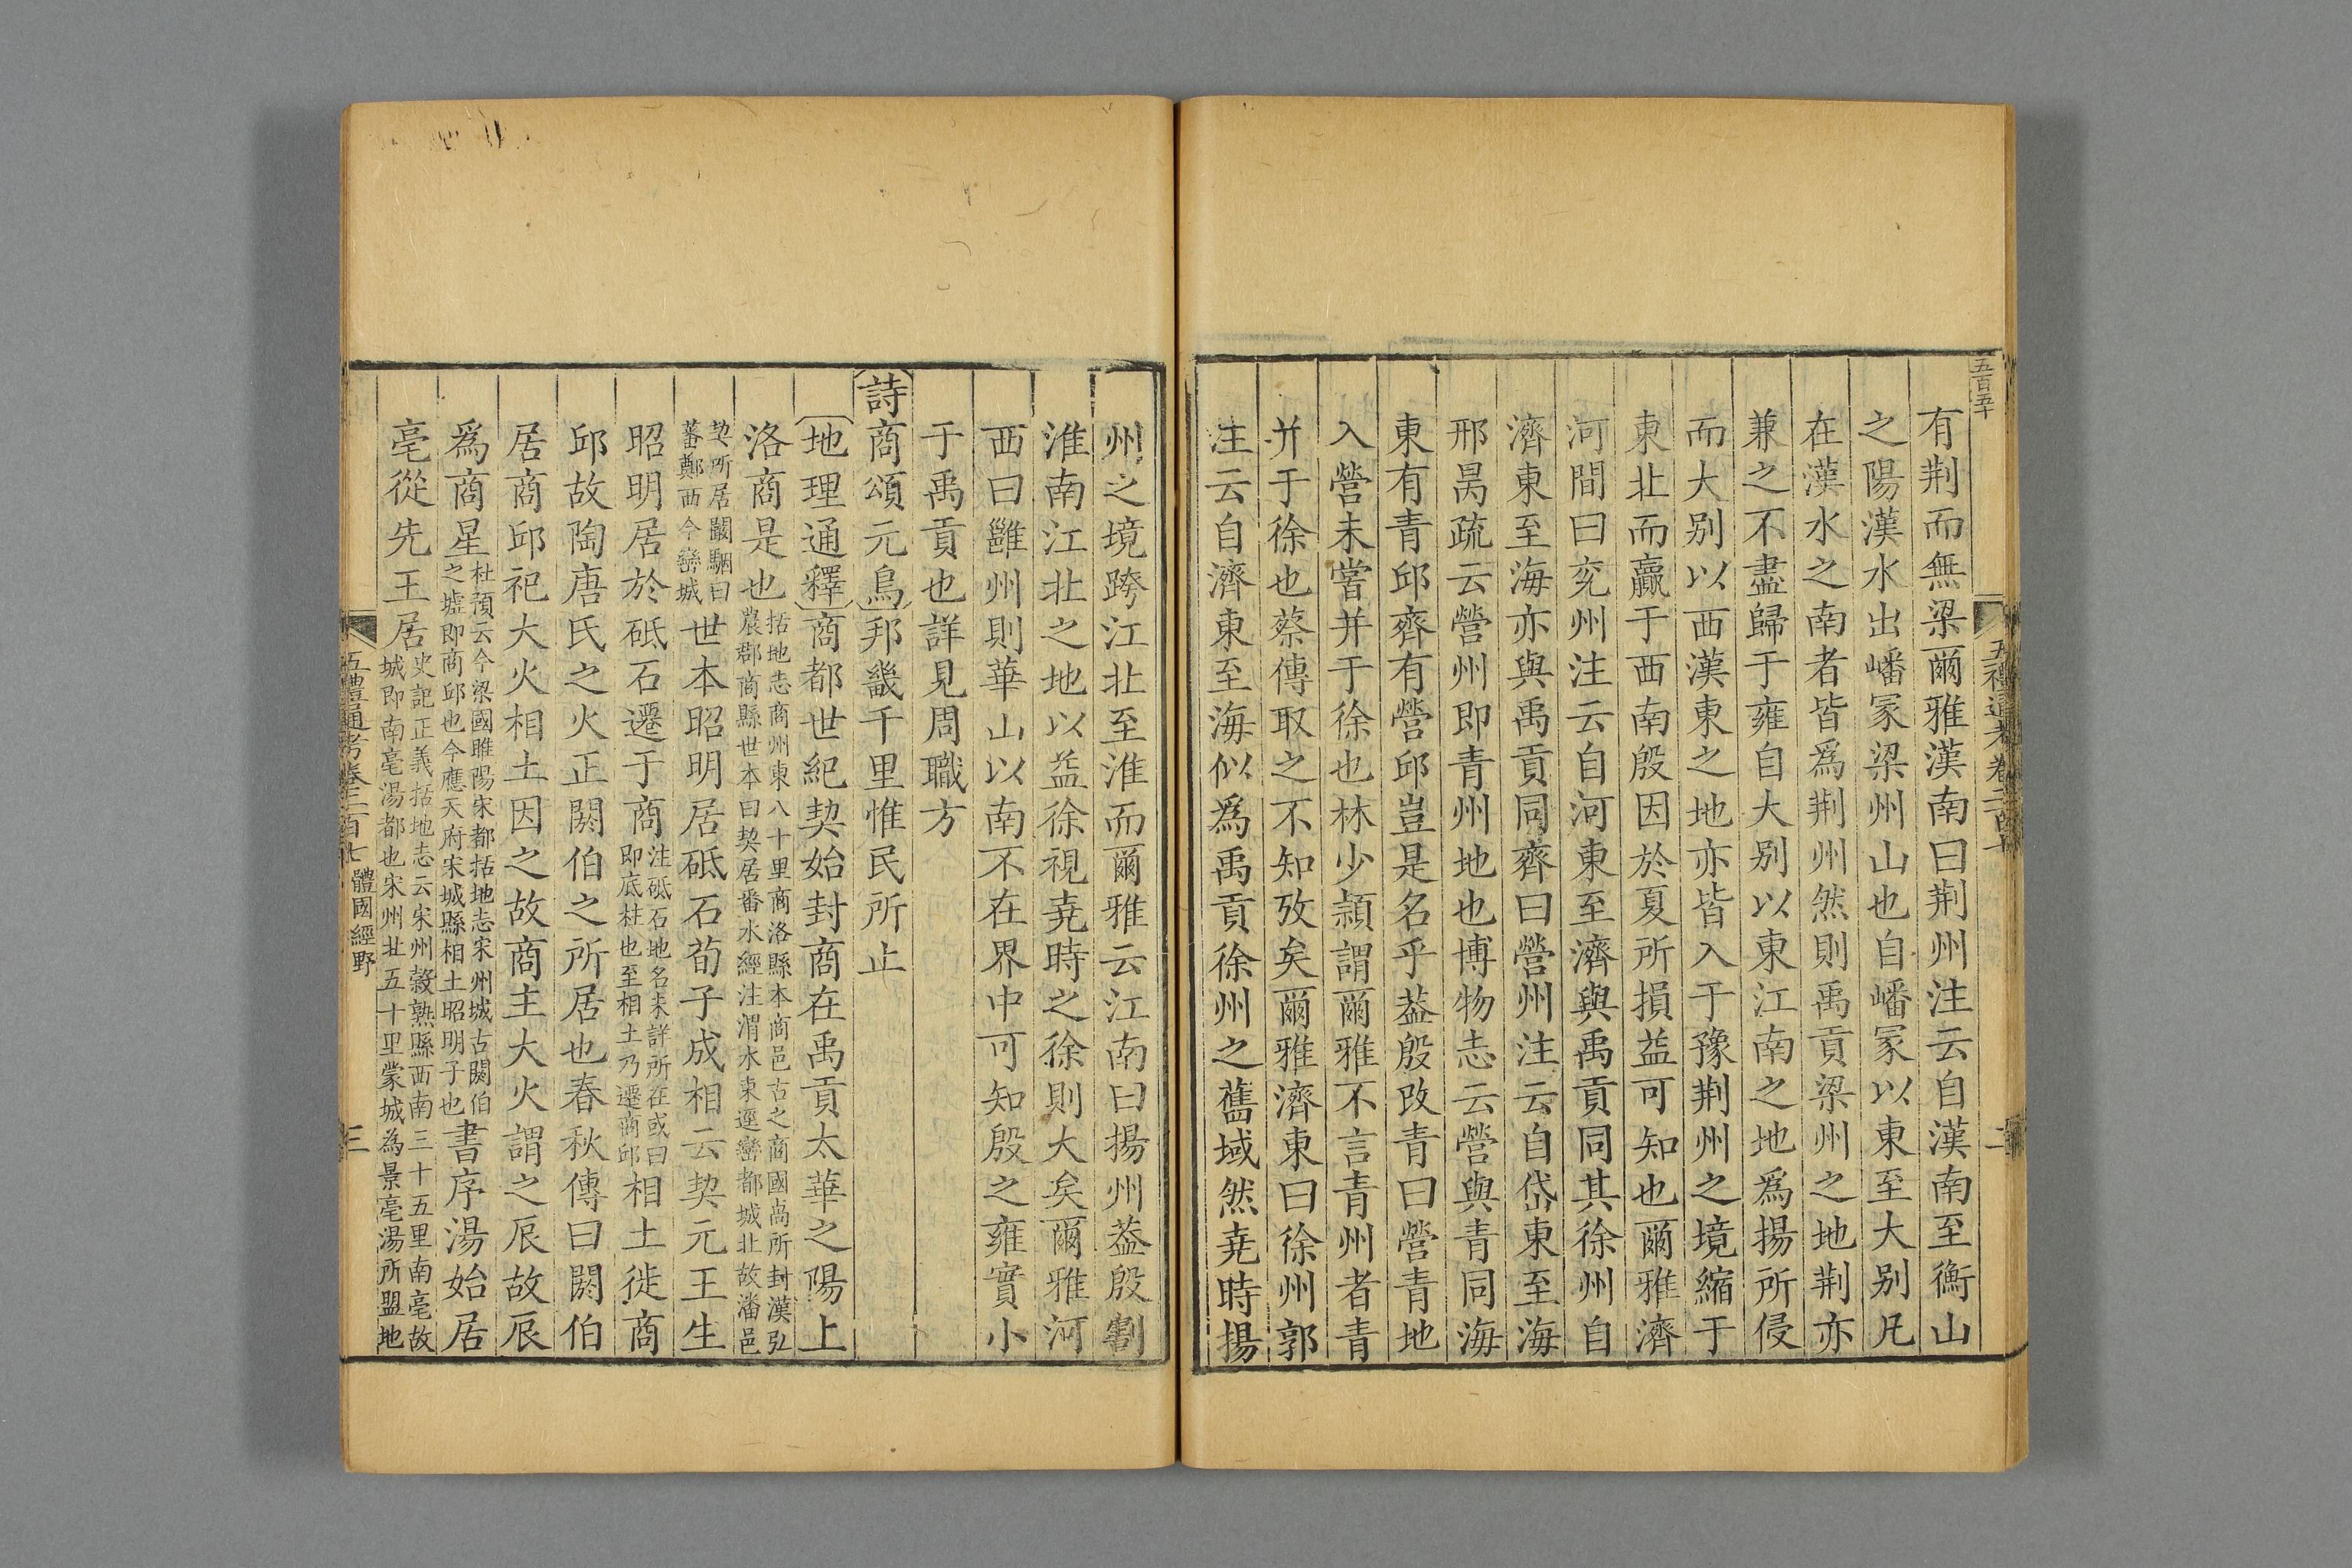 五百五十
有荆而無梁爾雅漢南曰荆州注云自漢南至衡山
之陽漢水出嶓冢梁州山也自嶓冢以東至大别凡
在漢水之南者皆爲荆州然則禹貢梁州之地荆亦
兼之不盡歸于雍自大别以東江南之地爲揚所侵
而大别以西漢東之地亦皆入于豫荆州之境縮于
東北而贏于西南殷因於夏所損益可知也爾雅濟
河間曰兖州注云自河東至濟與禹貢同其徐州自
濟東至海亦與禹貢同齊曰營州注云自岱東至海
邢昺疏云營州即青州地也博物志云營與青同海
東有青邱齊有營邱豈是名乎葢殷改青曰營青地
入營未嘗并于徐也林少頴謂爾雅不言青州者青
并于徐也蔡傳取之不知攷矣爾雅濟東曰徐州郭
注云自濟東至海似爲禹貢徐州之舊域然堯時揚
州之境跨江北至淮而爾雅云江南曰揚州葢殷割
淮南江北之地以益徐視堯時之徐則大矣爾雅河
西曰雝州則華山以南不在界中可知殷之雍實小
于禹貢也詳見周職方
詩商頌元鳥邦畿千里惟民所止
地理通釋商都世紀契始封商在禹貢太華之陽上
洛商是也括地志商州東八十里商洛縣本商邑古之商國卨所封漢弘
農郡商縣世本曰契居番水經注渭水東逕巒都城北故潘邑
契所居闞駰曰
蕃鄭西今巒城世本昭明居砥石荀子成相云契元王生
昭明居於砥石遷于商注砥石地名未詳所在或曰
即底柱也至相土乃遷商邱相土徙商
邱故陶唐氏之火正閼伯之所居也春秋傳曰閼伯
居商邱祀大火相土因之故商主大火謂之辰故辰
爲商星杜預云今梁國睢陽宋都括地志宋州城古閼伯
之墟即商邱也今應天府宋城縣相土昭明子也書序湯始居
亳從先王居史記正義括地志云宋州穀熟縣西南三十五里南亳故
城即南亳湯都也宋州北五十里蒙城為景亳湯所盟地
五禮通考卷二百七 體國經野 三